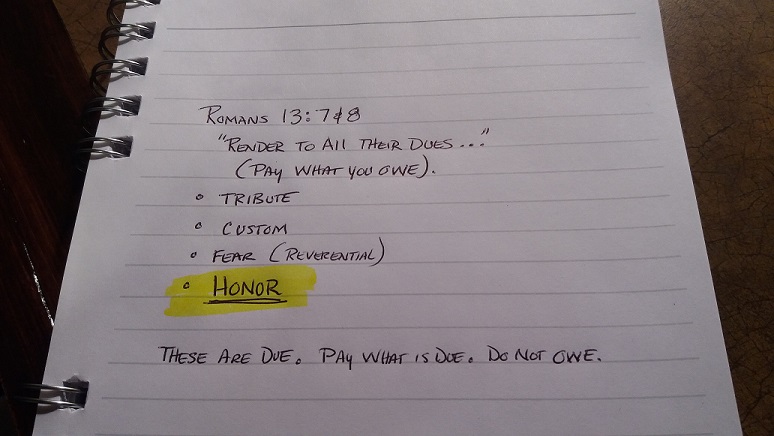 Romans 13:7&8
"Render to All Their Dues..."
(Pay What you Owe).
• Tribute
• Custom
• Fear (Reverential)
• Honor
These Are Due. Pay What is Due. Do Not Owe.